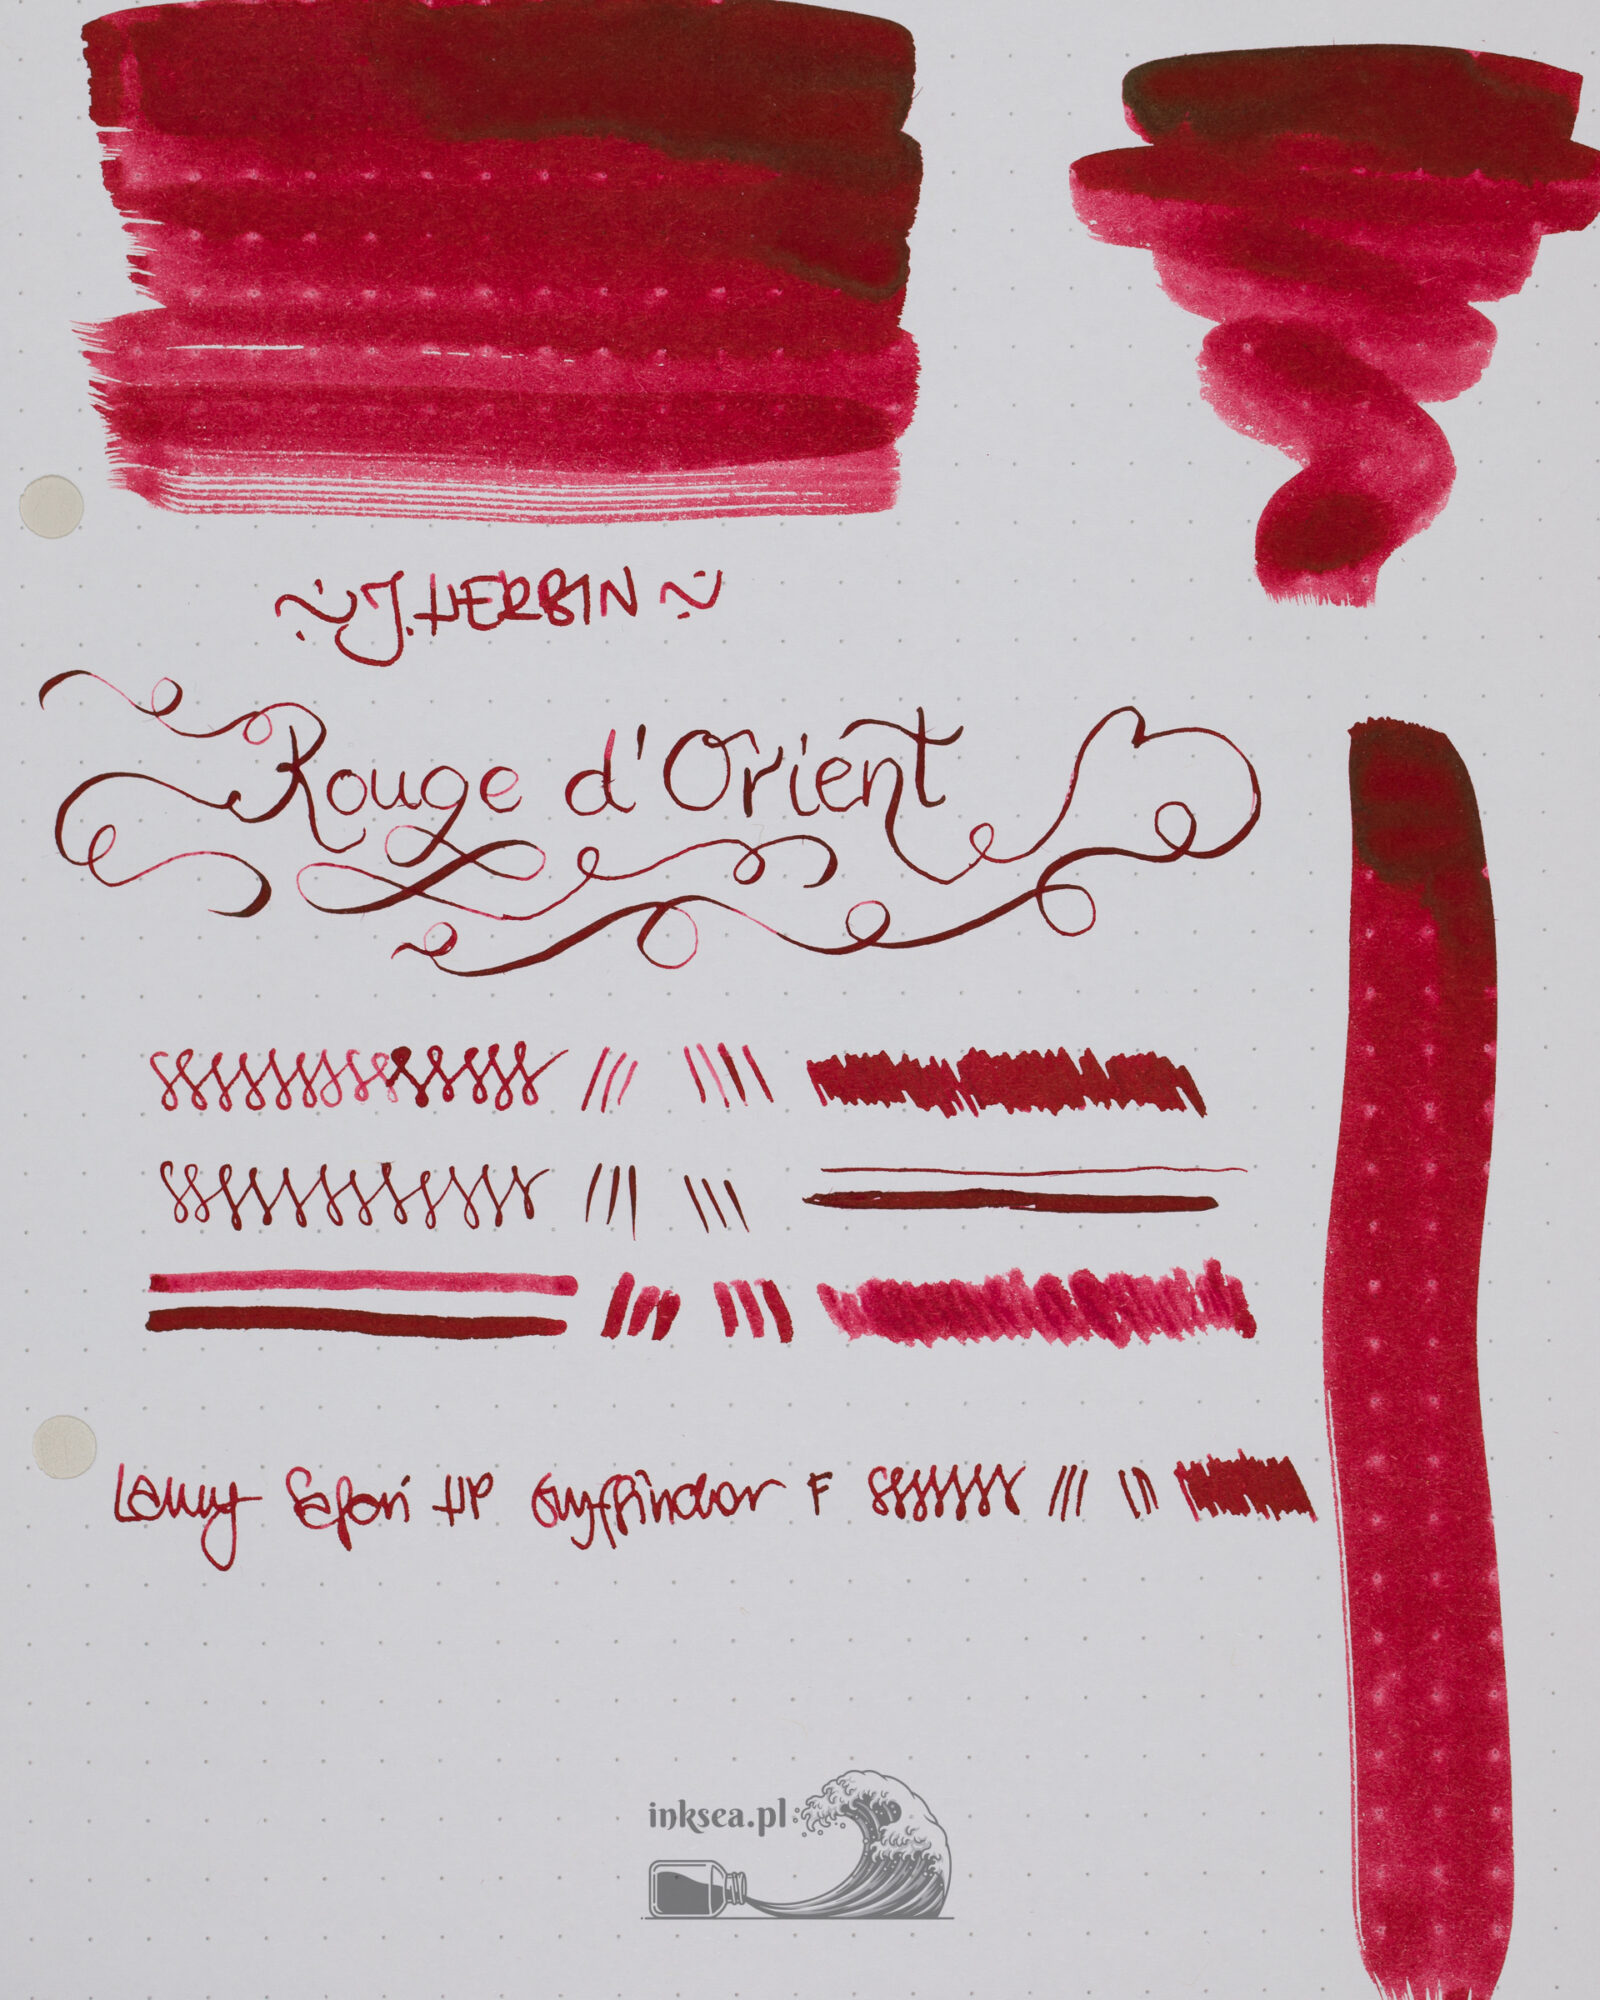 ~J. HERBIN~
Rouge d'Orient
Lamy Safari HP Gryffindor F
inksea.pl